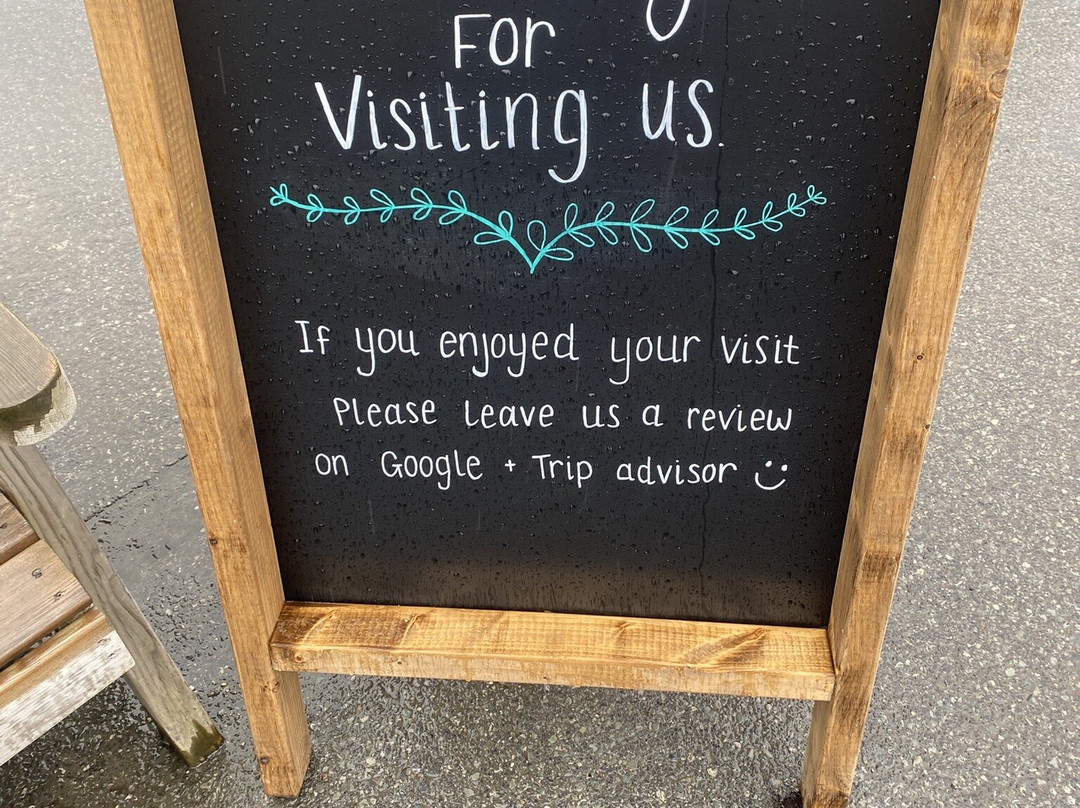 For
Visiting us.
If you enjoyed your visit
Please leave us a review
on Google + Trip advisor